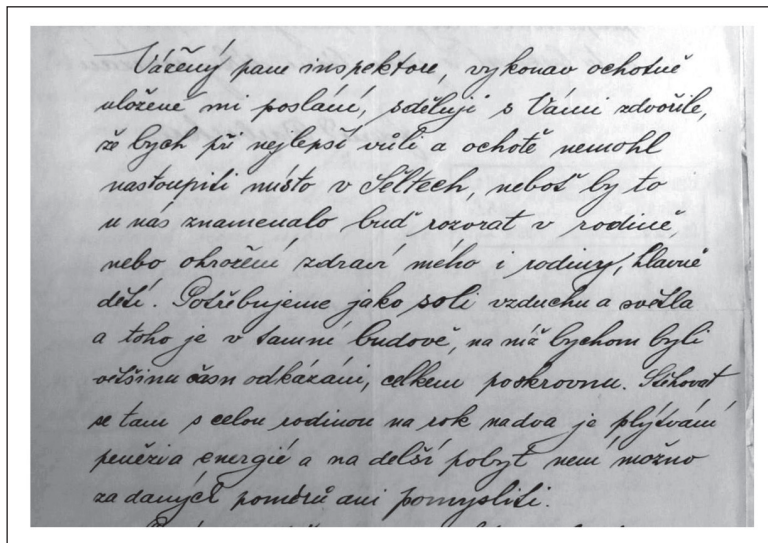 Vážený pane inspektore, vykonav ochotně
uložené mi poslání, sděluji s Vámi zdvořile,
že bych při nejlepší vůli a ochotě nemohl
nastoupiti místo v Séltech, neboť by to
u nás znamenalo buď rozvrat v rodině,
nebo ohrožení zdraví mého i rodiny, hlavně
dětí. Potřebujeme jako soli vzduchu a světla
a toho je v tamní budově, na niž bychom byli
většinu času odkázáni, celkem poskrovnu. Stěhovat
se tam s celou rodinou na rok nadva je plýtvání
peněz i a energie a na delší pobyt není možno
za daných poměrů ani pomysliti.